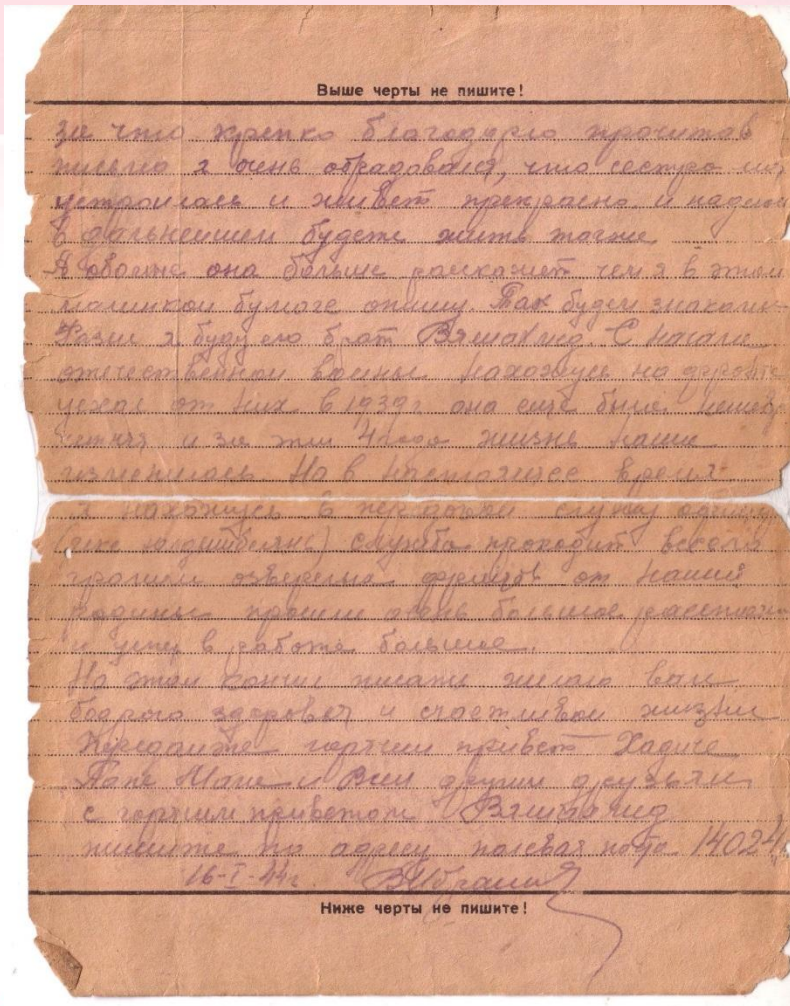 Выше черты не пишите!
За что крепко благодарю прочитав
письмо я очень обрадовался, что сестра
устроилась и живет прекрасно и
в дальнейшем будете жить также
она больше раскажет чем я в этом
малинкой бумаге опишу. Так будем знакомы
я буду его брат С начала
отечественной войны нахожусь на фронте
уехал от них в 1939 г она еще была
и за эти 4 года жизнь наша
изменилась. На в настоящее время
я нахожусь в
служба проходит весело
громим озверелых фрицов от нашей
родины прошли очень большое
и в работе большие.
На этом кончаю писать желаю вам
бодрого здоровья и счастливой жизни
Передайте горячий привет Хадиче
Папе Маме и Всем другим друзьям
с горячим приветом
пишите по адресу полевая почта 14024
16-I-44 г.
Ниже черты не пишите!